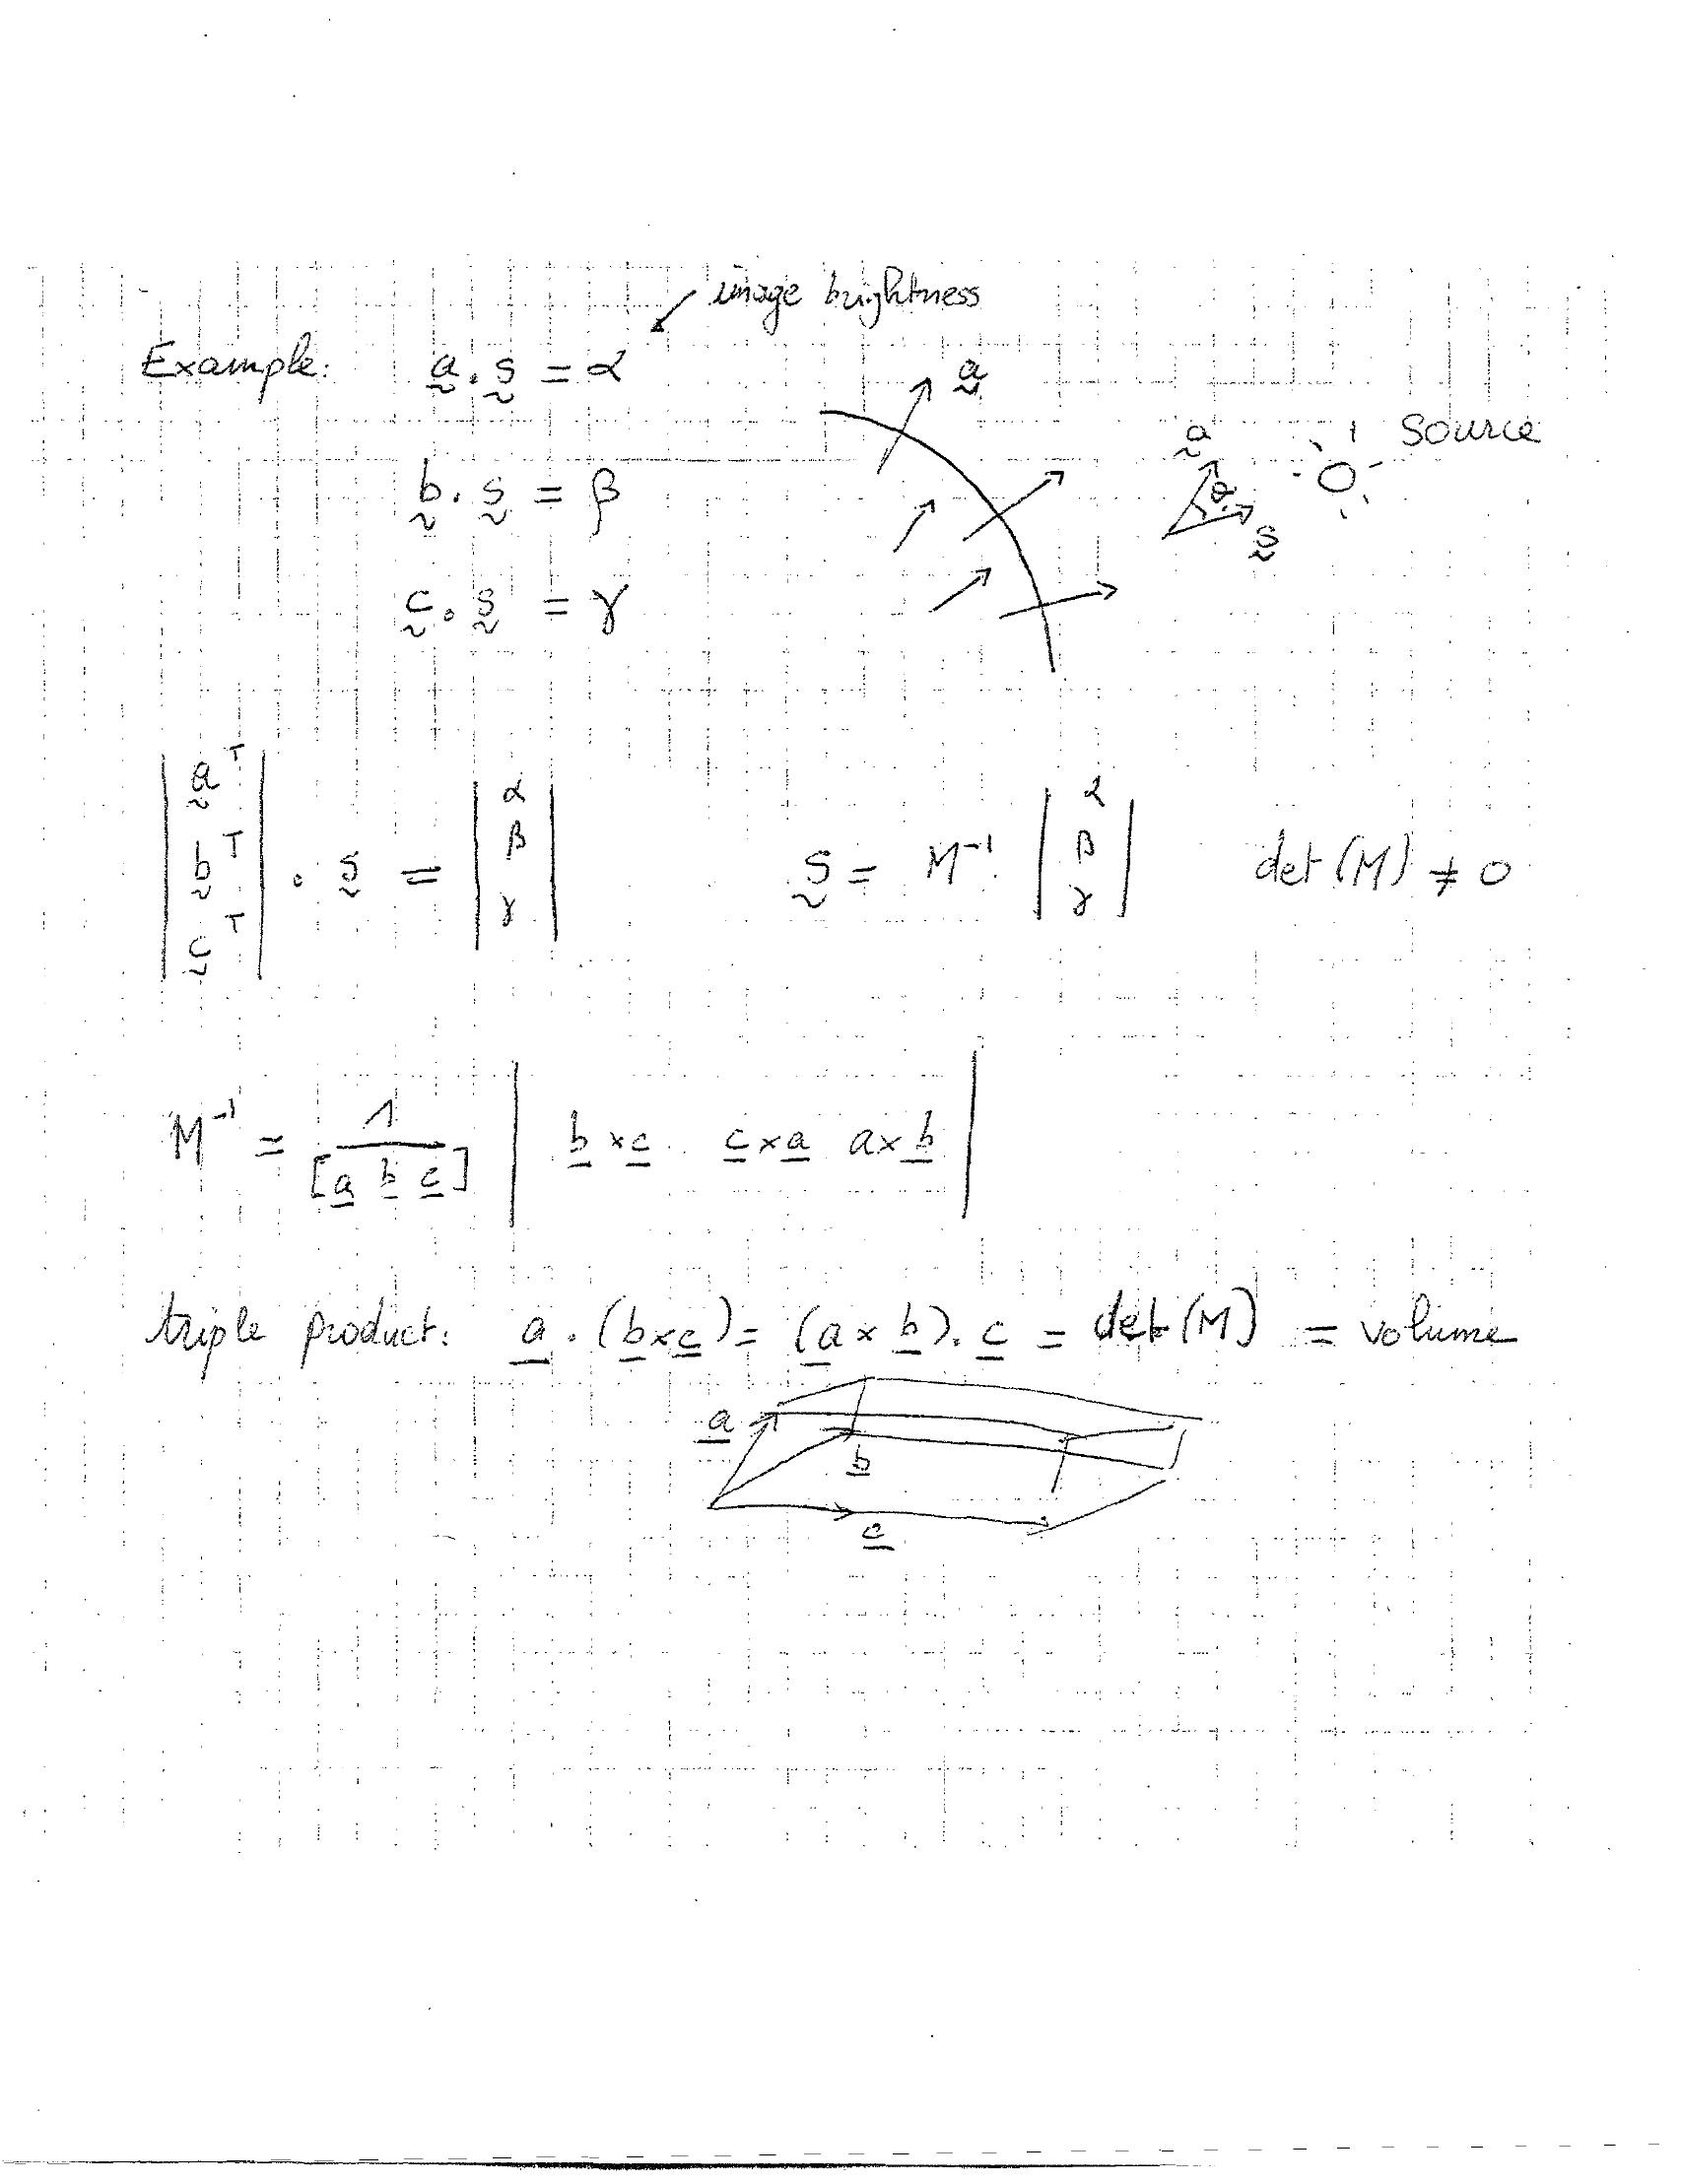 image brightness
Example: a · s = α
b · s = β
c · s = γ
a
a
θ
s
Source
| aᵀ bᵀ cᵀ | · s = | α β γ |
s = M⁻¹ | α β γ | det (M) ≠ 0
M⁻¹ = 1 / [a b c] | b × c c × a a × b |
triple product: a · (b × c) = (a × b) · c = det (M) = volume
a
b
c